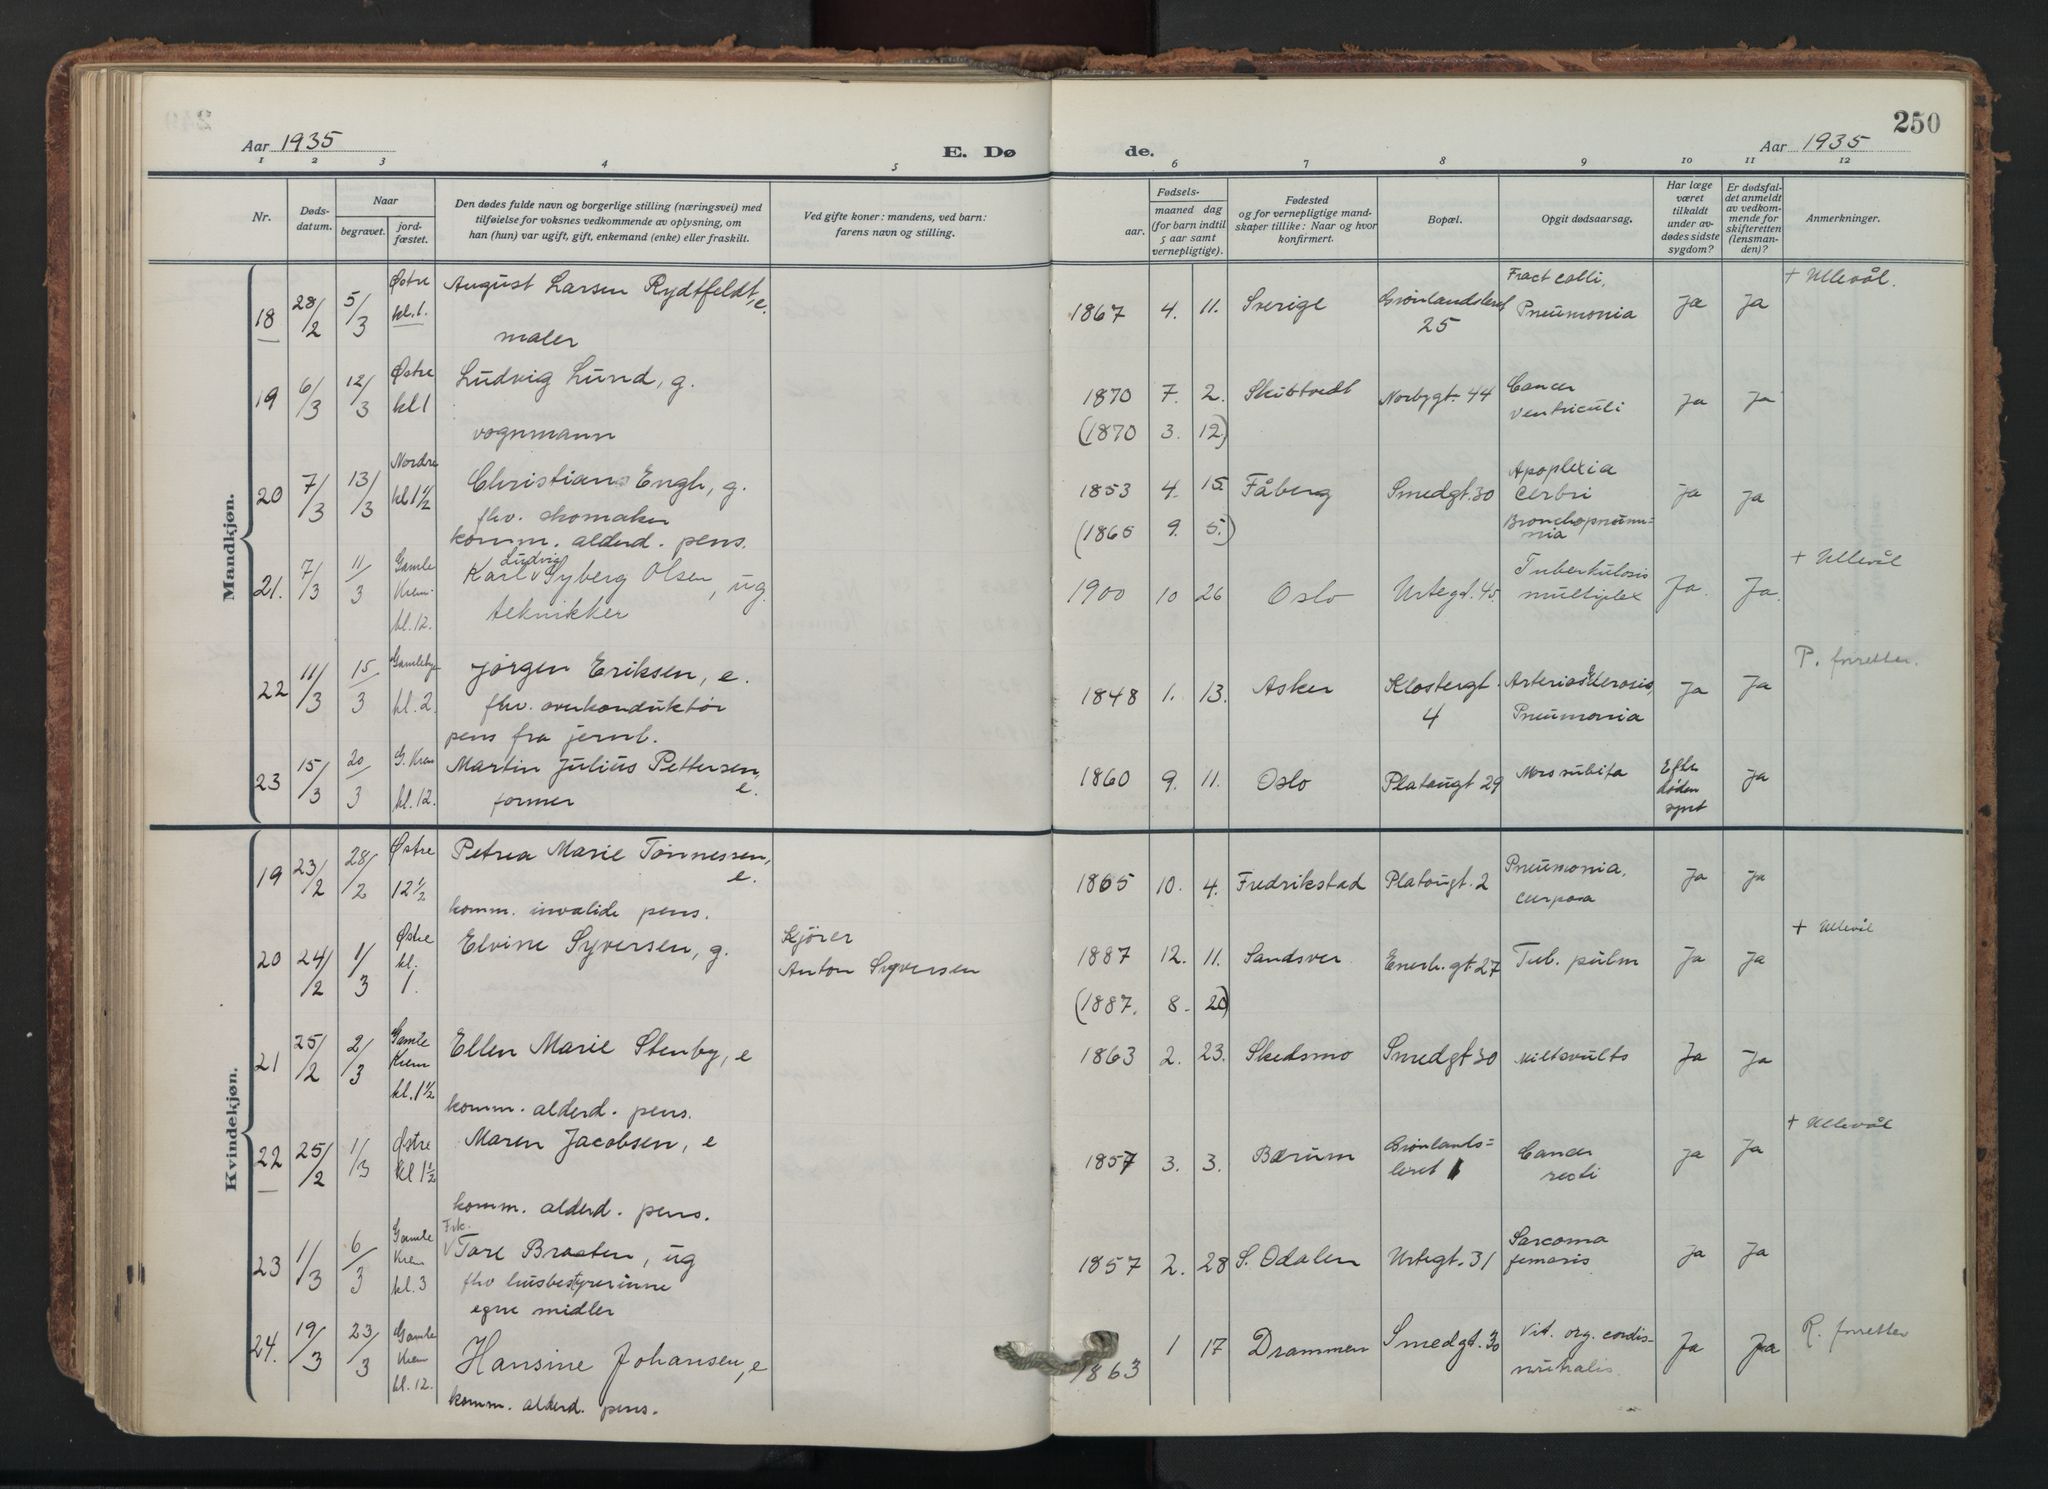 250
Aar 1935
E. Dø
de.
Aar 1935
1 2 3 4 5 6 7 8 9 10 11 12
Nr.
Døds-
datum.
Naar
begravet.
jord-
fæstet.
Den dødes fulde navn og borgerlige stilling (næringsvei) med
tilføielse for voksnes vedkommende av oplysning, om
han (hun) var ugift, gift, enkemand (enke) eller fraskilt.
Ved gifte koner: mandens, ved barn:
farens navn og stilling.
Fødsels-
aar.
maaned dag
(for barn indtil
5 aar samt
vernepligtige).
Fødested
og for vernepligtige mand-
skaper tillike: Naar og hvor
konfirmert.
Bopæl.
Opgit dødsaarsag.
Har læge
været
tilkaldt
under av-
dødes sidste
sygdom?
Er dødsfal-
det anmeldt
av vedkom-
mende for
skifteretten
(lensman-
den)?
Anmerkninger.
Mandkjøn.
18 28/2 5/3 Østre kl. 1. August Larsen Rydtfeldt, e. 1867 4. 11. Sverige Grønlandsleret 25 Fract colli, Pneumonia Ja Ja + Ullevål.
maler
19 6/3 12/3 Østre kl 1 Ludvig Lund, g. 1870 7. 2. Skibtvedt Norbygt. 44 Cancer ventriculi Ja Ja
vognmann (1870 3. 12)
20 7/3 13/3 Nordre kl 1 1/2 Christian Engh, g. 1853 4. 15. Fåberg Smedgt. 30 Apoplexia cerbri Ja Ja
fhv. skomaker (1865 9. 5.) Bronchopneumo-
nia
komm. alderd. pens.
21. 7/3 11/3 Gamle Krem. kl. 12. Karl Ludvig Syberg Olsen, ug. 1900 10 26 Oslo Urtegt. 45. Tuberkulosis multiplex Ja. Ja. + Ullevål
teknikker
22 11/3 15/3 Gamleby kl. 2. Jørgen Eriksen, e. 1848 1. 13. Asker Klostergt. 4 Arteriosklerosis, Pneumonia Ja Ja P. forretter.
fhv. overkonduktør
pens fra jernb.
23 15/3 20/3 G. Krem kl. 12. Martin Julius Pettersen, e. 1860 9. 11. Oslo Platougt 29 Mors subita Efter døden synt Ja
former
Kvindekjøn.
19 23/2 28/2 Østre 12 1/2 Petrea Marie Tønnessen, e. 1865 10. 4. Fredrikstad Platougt. 2 Pneumonia, Ja Ja
komm. invalide pens.
20 24/2 1/3 Østre kl. 1. Elvine Syversen, g. Kjører Anton Syversen 1887 12. 11. Sandsver Enerh. gt 27 Tub. pulm Ja Ja + Ullevål
(1887. 8. 20)
21 25/2 2/3 Gamle Krem kl. 1 1/2 Ellen Marie Stenby, e 1863 2. 23. Skedsmo Smedgt 30 Ja Ja
komm. alderd. pens.
22 25/2 1/3 Østre kl 1 1/2 Maren Jacobsen, e 1857 3. 3. Bærum Grønlands-
leret 1 Cancer recti Ja Ja + Ullevål
komm. alderd. pens.
23 1/3 6/3 Gamle Krem kl. 3 Frk. Tore Braaten, ug 1857 2. 28 S. Odalen Urtegt. 31 Sarcoma femoris Ja Ja
fhv husbestyrerinne
egne midler
24. 19/3 23/3 Gamle Krem kl. 12. Hansine Johansen, e 1863 1 17 Drammen Smedgt. 30 Vit. org. cordis Ja Ja R. forretter
komm. alderd. pens.